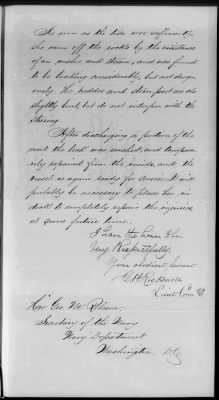 As soon as the tide was sufficiently
she came off the rocks by the assistance
of an anchor and steam, and was found
to be leaking considerably, but not danger-
ously. The rudder and stern post are also
slightly bent, but do not interfere with the
steering.
After discharging a portion of the
coal the leak was reached and tempor-
arily repaired from the inside, and the
vessel is again ready for service. It will
probably be necessary to place her in
dock to completely repair the injuries
at some future time.
I have the honor to be
Very Respectfully,
Your obedient Servant
Lieut Com
Hon. Geo. M. Robeson
Secretary of the Navy
Navy Department
Washington D.C.